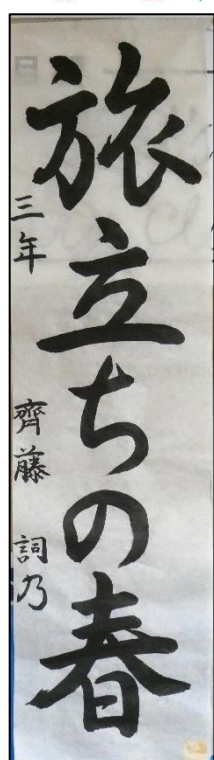 旅立ちの春
三年 齊藤 詞乃